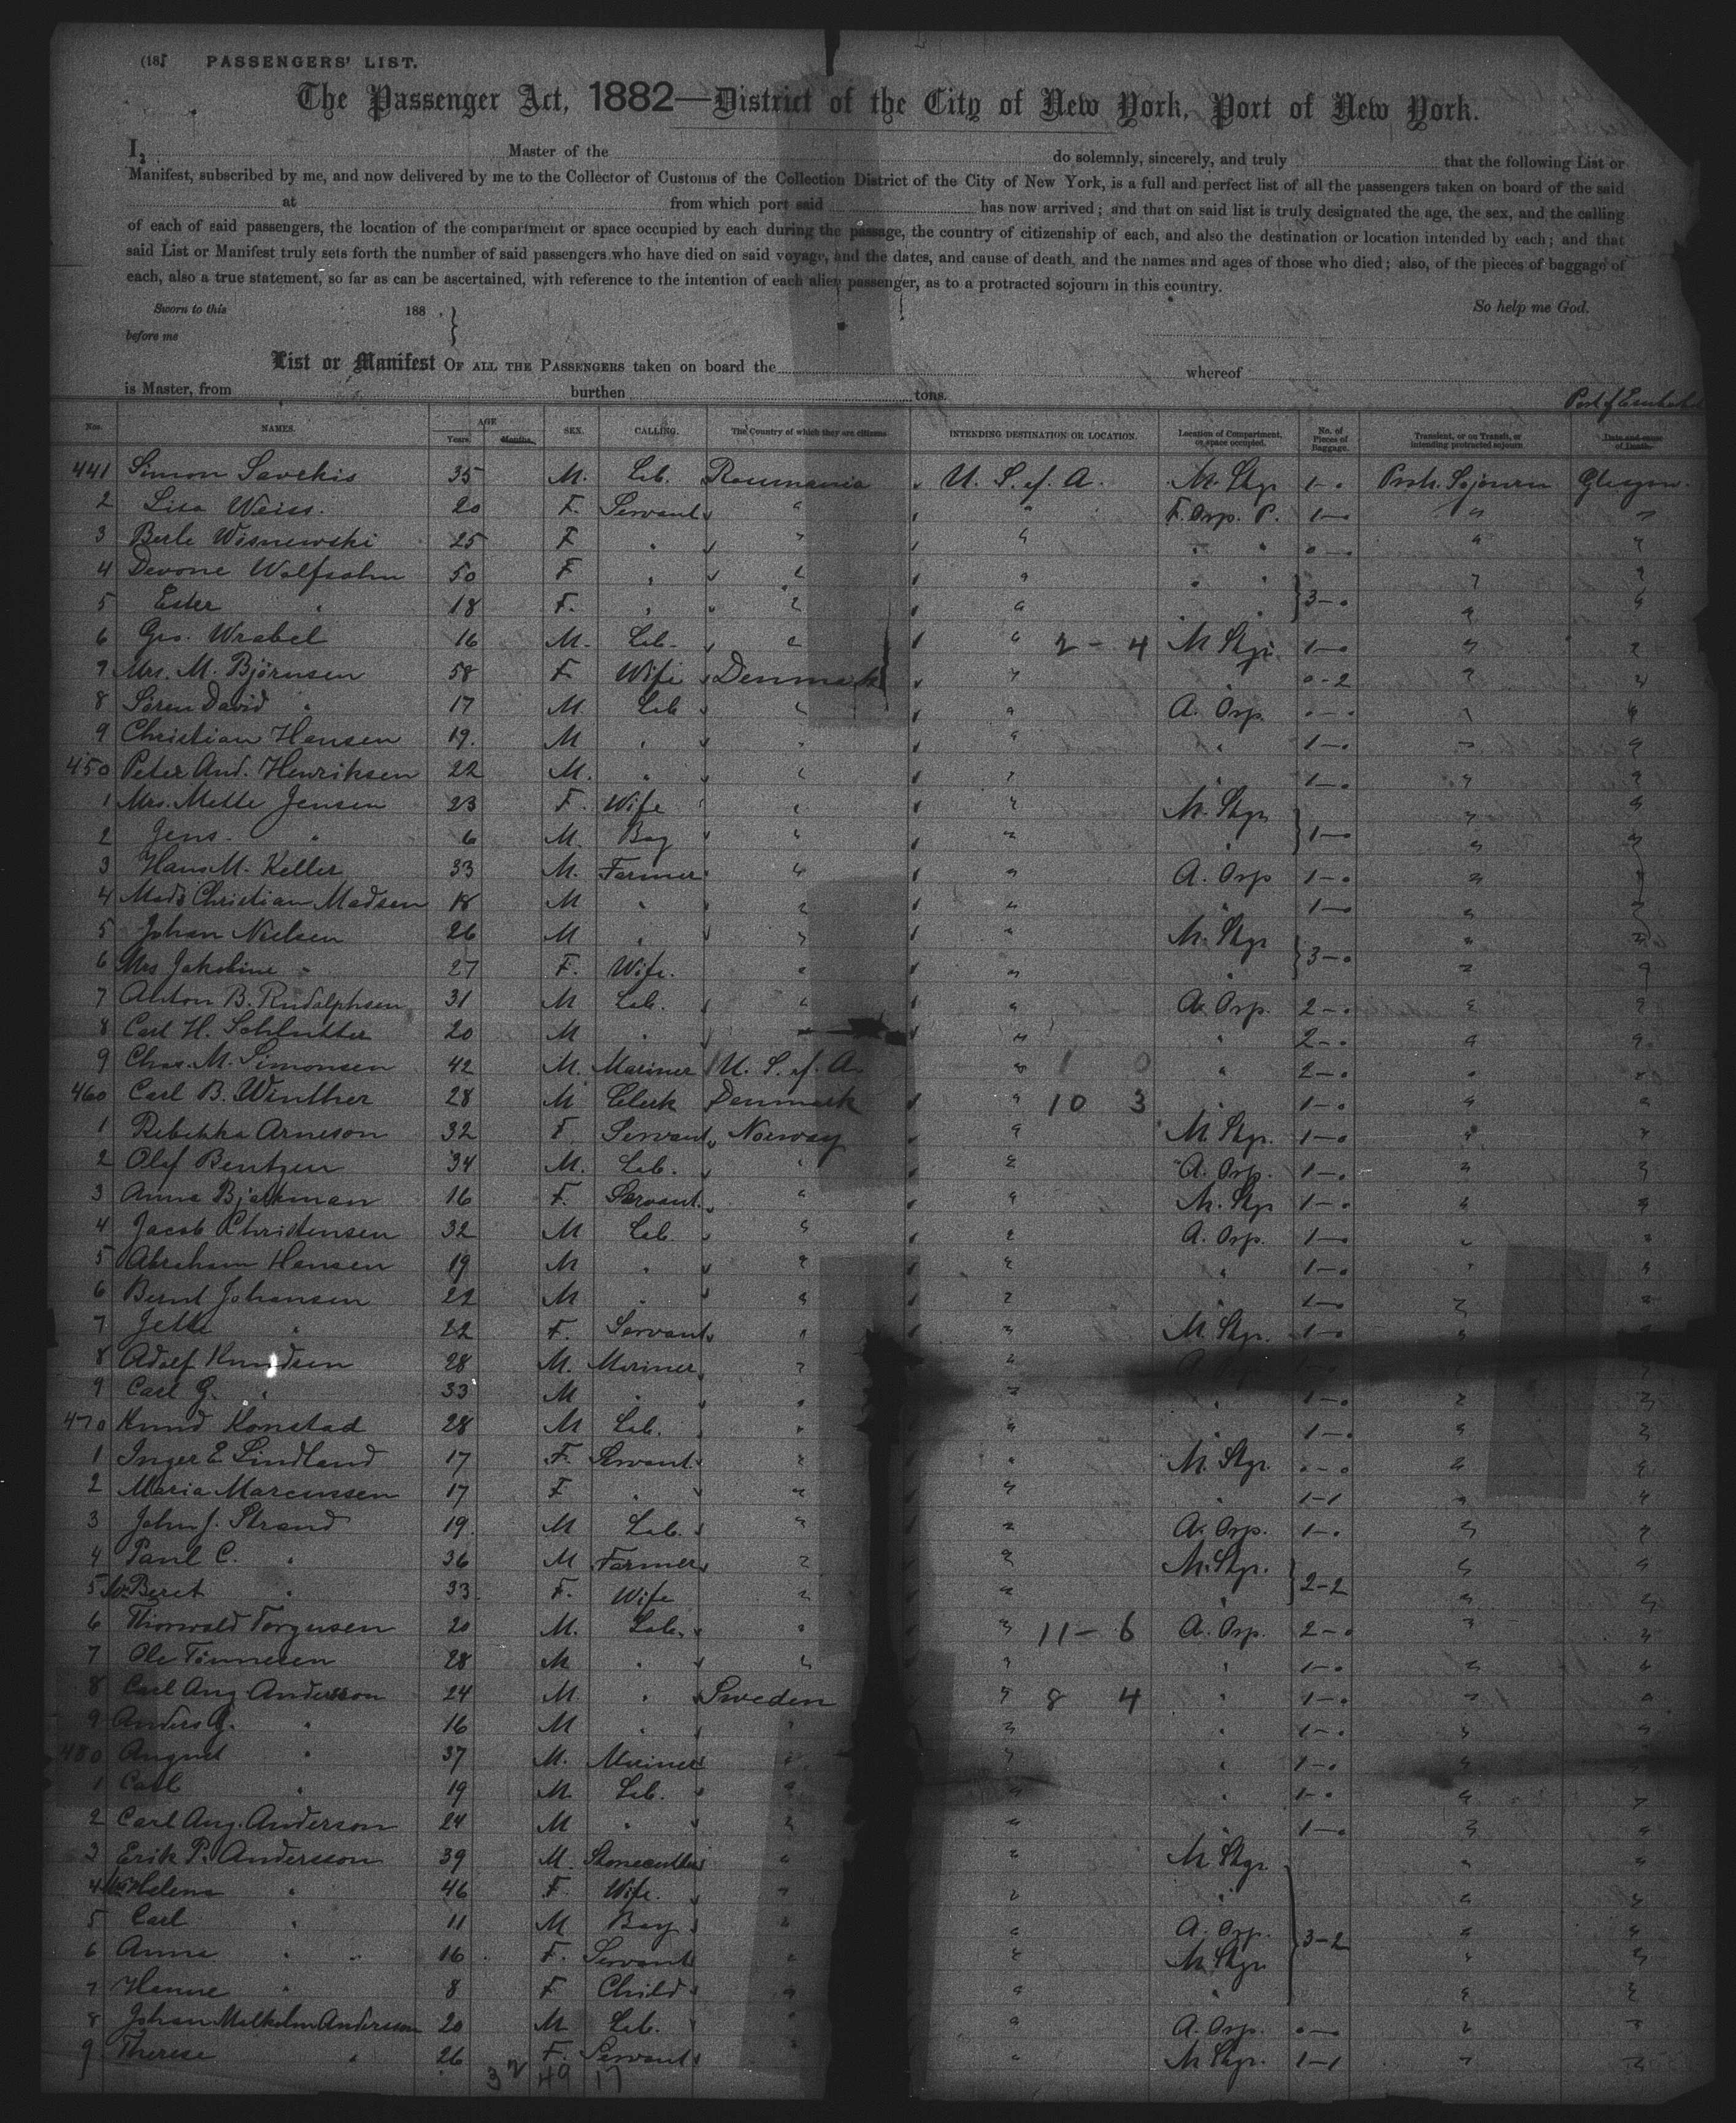 (18) PASSENGERS' LIST.
The Passenger Act, 1882—District of the City of New York, Port of New York.
I, Master of the do solemnly, sincerely, and truly that the following List or
Manifest, subscribed by me, and now delivered by me to the Collector of Customs of the Collection District of the City of New York, is a full and perfect list of all the passengers taken on board of the said
at from which port said has now arrived; and that on said list is truly designated the age, the sex, and the calling
of each of said passengers, the location of the compartment or space occupied by each during the passage, the country of citizenship of each, and also the destination or location intended by each; and that
said List or Manifest truly sets forth the number of said passengers who have died on said voyage, and the dates, and cause of death, and the names and ages of those who died; also, of the pieces of baggage of
each, also a true statement, so far as can be ascertained, with reference to the intention of each alien passenger, as to a protracted sojourn in this country.
Sworn to this 188 . } So help me God.
before me
List or Manifest OF ALL THE PASSENGERS taken on board the whereof
is Master, from burthen tons.
Port of
Nos. NAMES. AGE Years. Months. SEX. CALLING. The Country of which they are citizens INTENDING DESTINATION OR LOCATION. Location of Compartment, or space occupied. No. of Pieces of Baggage. Transient, or on Transit, or intending protracted sojourn Date and cause of Death.
441 Simon Savekis 35 M. Lab. Roumania U. S. of A. M. Stgr 1-0 Prot. Sojourn Glasgow.
2 Lisa Weiss. 20 F. Servant " " F. Orp. P. 1-0 " "
3 Berle Wisnewski 25 F " " " " " 0-0 " "
4 Devone Wolfsohn 50 F " " " " " " "
5 Ester " 18 F. " " " " " } 3-0 " "
6 Geo. Wrabel 16 M. Lab. " " 2-4 M Stgr. 1-0 " "
7 Mrs. M. Björnsen 58 F Wife Denmark " " 0-2 " "
8 Sören David " 17 M. Lab " " A. Orp. 0-0 " "
9 Christian Hansen 19. M " " " " 1-0 " "
450 Peter And. Henriksen 22 M. " " " " 1-0 " "
1 Mrs. Mette Jensen 23 F. Wife " " M. Stgr " "
2 Jens. " 6 M. Boy " " " } 1-0 " "
3 Hans M. Keller 33 M. Farmer " " A. Orp 1-0 " "
4 Mads Christian Madsen 18 M " " " " 1-0 " "
5 Johan Nielsen 26 M " " " M. Stgr " "
6 Mrs Jakobine " 27 F. Wife. " " " } 3-0 " "
7 Anton B. Rudolphsen 31 M Lab. " " A. Orp. 2-0 " "
8 Carl H. Schlutter 20 M " " " " 2-0 " "
9 Chas. M. Simonsen 42 M. Mariner U. S. of A. " 1 0 " 2-0 " "
460 Carl B. Winther 28 M Clerk Denmark " 10 3 " 1-0 " "
1 Rebekka Arneson 32 F. Servant Norway " M. Stgr. 1-0 " "
2 Olef Bentzen 34 M. Lab. " " A. Orp. 1-0 " "
3 Anna Bjorkman 16 F. Servant. " " M. Stgr 1-0 " "
4 Jacob Christensen 32 M Lab. " " A. Orp. 1-0 " "
5 Abraham Hansen 19 M " " " " 1-0 " "
6 Bernt Johansen 22 M " " " " 1-0 " "
7 Jette " 22 F. Servant " " M Stgr. 1-0 " "
8 Adolf Knudsen 28 M. Mariner " " "
9 Carl G. " 33 M " " " " 1-0 " "
470 Knud Konstad 28 M Lab. " " 1-0 " "
1 Inger E Lindland 17 F. Servant. " " M. Stgr. 0-0 " "
2 Maria Marcussen 17 F " " " " 1-1 " "
3 John J. Strand 19. M Lab. " " A. Orp. 1-0 " "
4 Paul C. " 36 M Farmer " " M. Stgr. " "
5 Mrs Beret " 33 F. Wife " " " } 2-2 " "
6 Thorwald Torgusen 20 M. Lab. " " 11-6 A. Orp. 2-0 " "
7 Ole Tönnesen 28 M " " " " 1-0 " "
8 Carl Aug Andersson 24 M. " Sweden " 8 4 " 1-0 " "
9 Anders G. " 16 M " " " " 1-0 " "
480 August " 37 M. Mariner " " " 1-0 " "
1 Carl " 19 M. Lab. " " " 1-0 " "
2 Carl Aug. Anderson 24 M " " " " 1-0 " "
3 Erik P. Andersson 39 M. Stonecutter " " M Stgr. " "
4 Mrs Helena " 46 F. Wife. " " " " "
5 Carl " 11 M Boy " " A. Orp. } 3-2 " "
6 Anna " 16 F. Servant " " M Stgr. " "
7 Hanne " 8 F Child " " " " "
8 Johan Malkolm Andersson 20 M Lab. " " A. Orp. 0-0 " "
9 Therese " 26 F. Servant " " M Stgr. 1-1 " "
32 49 17